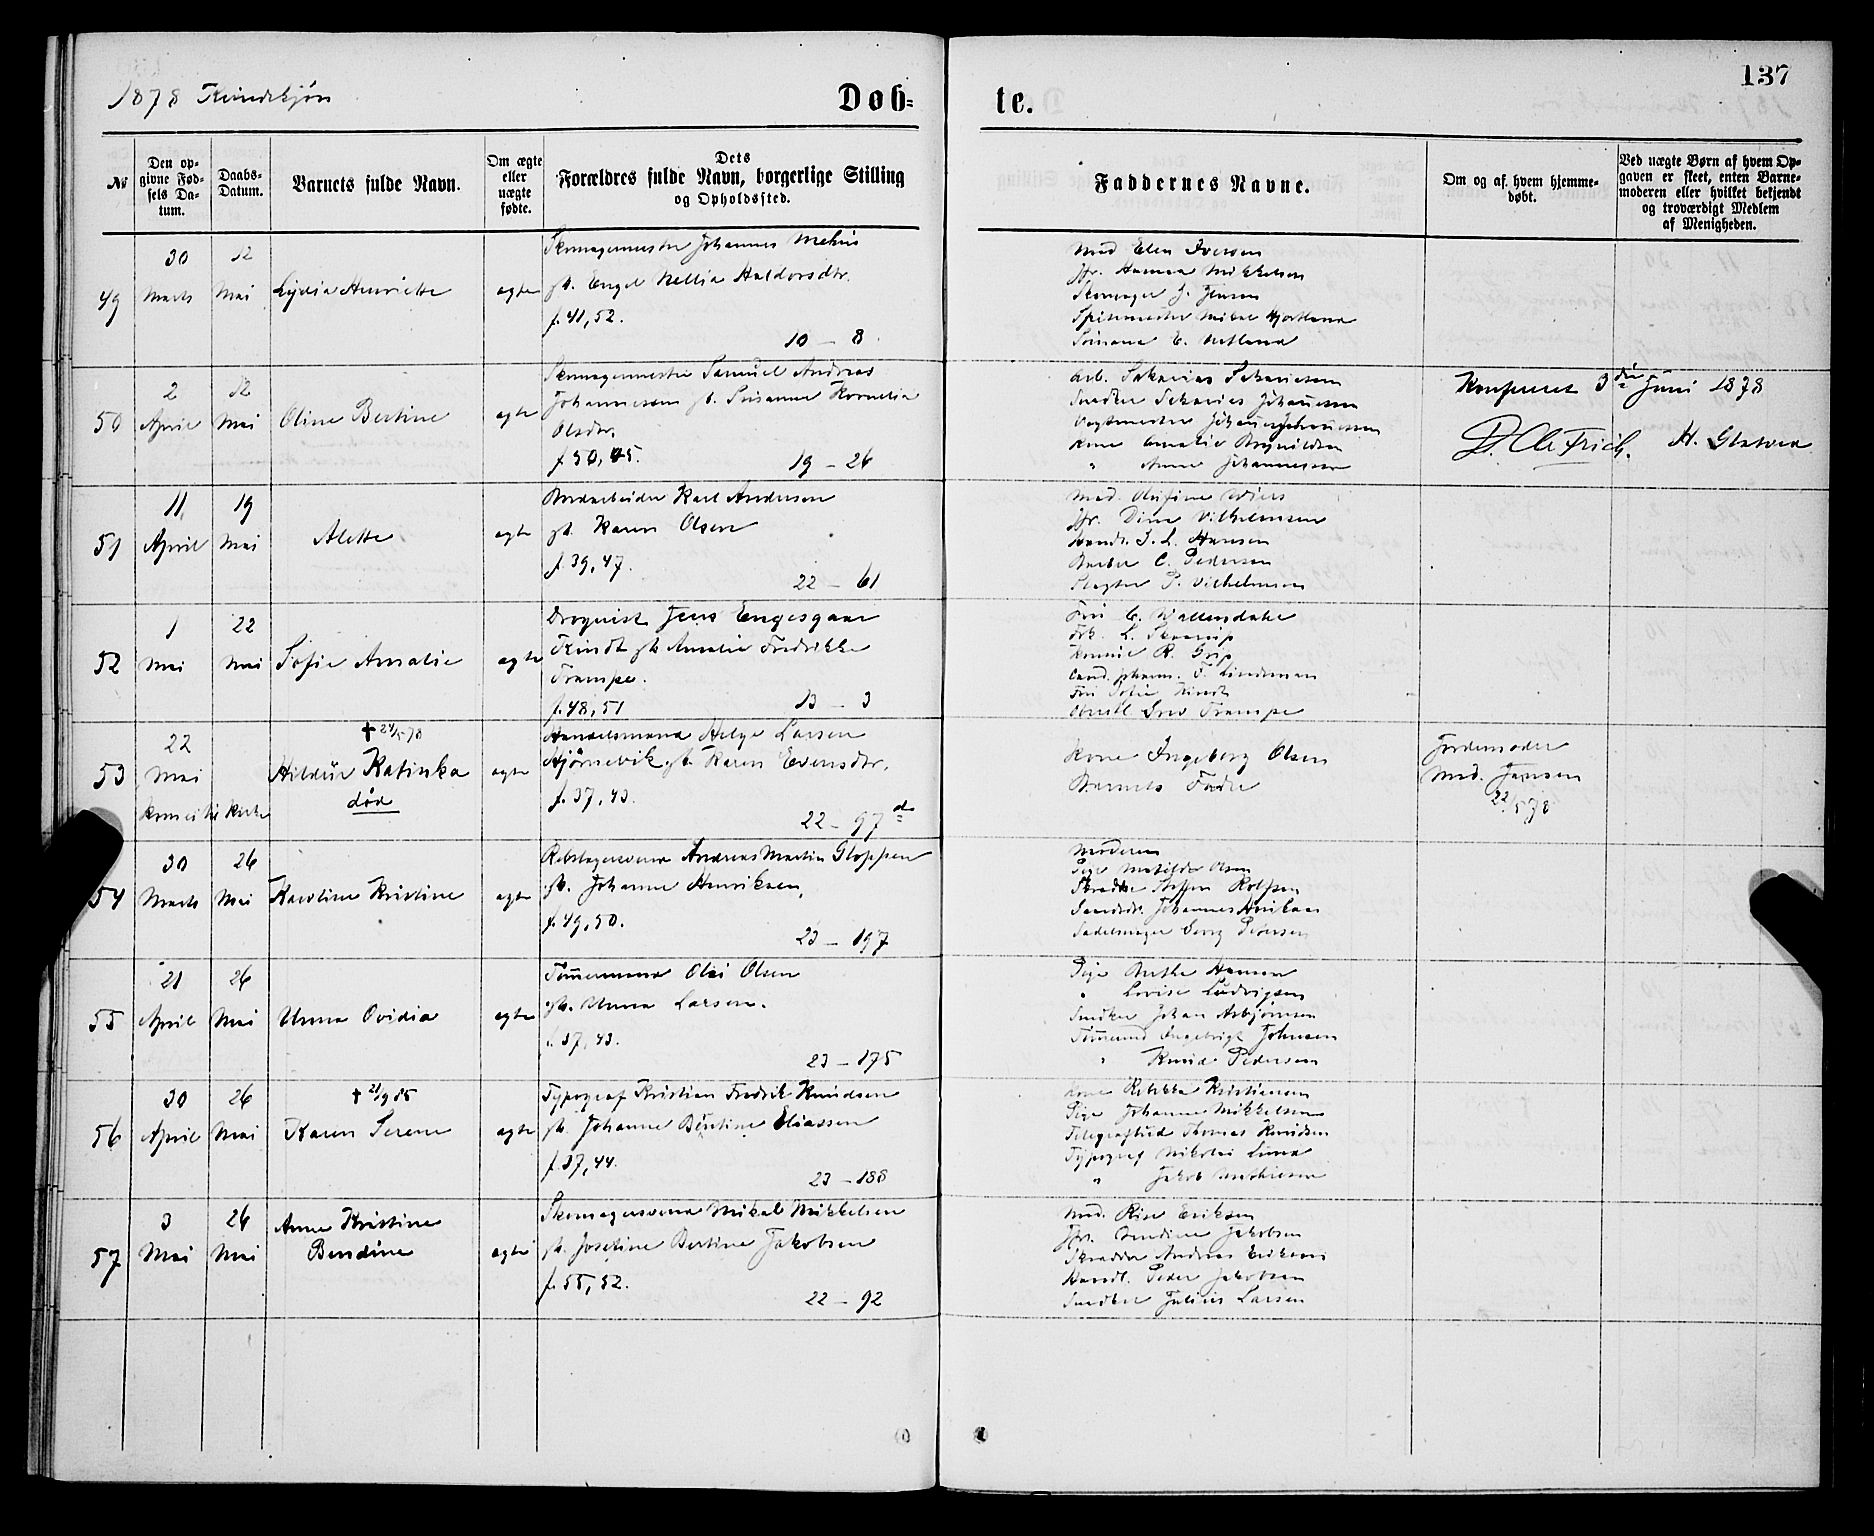 137
1878 Kvindekjøn
Døb-
te.
№
Den op-
givne Fød-
sels Da-
tum.
Daabs-
Datum.
Barnets fulde Navn.
Om ægte
eller
uægte
fødte.
Dets
Forældres fulde Navn, borgerlige Stilling
og Opholdssted.
Faddernes Navne.
Om og af hvem hjemme-
døbt.
Ved uægte Børn af hvem Op-
gaven er skeet, enten Barne-
moderen eller hvilket bekjendt
og troværdigt Medlem
af Menigheden.
49
30
Marts
12
Mai
Lydia Henriette
ægte
Skomagermester Johannes
gt. Engel Nellia Haldorsdtr.
f. 41, 52.
10 - 8
Mad Elen Iversen
Jfr. Hanna Mikkelsen
Skomager J. Jensen
Mikal Hjortland
50
2
April
12
Mai
Oline Bertine
ægte
Skomagermester Samuel Andreas
Johannesen gt. Susanne Kornelia
Olsdtr.
f 50, 45.
19 - 26
Arb. Sakarias Sakariesen
Snedker Sakarias Johannesen
Kone Amalie
" Anne Johannesen
Konfereret 3die Juni 1878
51
11
April
19
Mai
Alette
ægte
Karl Andersen
gt. Karen Olsen
f. 39, 47.
22 - 61
Mad. Olufine Wiers
Jfr. Dina Vilhelmsen
Handl. J. L. Hansen
C. Pedersen
Slagter P. Vilhelmsen
52
1
Mai
22
Mai
Sofie Amalie
ægte
Droguist Jens Engesgaar
Kindt gt. Amalie Fredrikke
Trampe.
f. 48, 51
13 - 3
Fru C. Wallendahl
Frk. L.
R. Grip
Cand. pharm. F. Lindeman
Fru Sofie Kindt
Trampe
53
22
Mai
✝ 24/5 78
Hildur Katinka
død
ægte
Handelsmand Helge Larsen
Hjørnevik gt. Karen Evensdtr.
f. 37, 43.
22 - 97 d
Kone Ingeborg Olsen
Barnets Fader
Jordemoder
Mad. Jensen
22/5 78
54
30
Marts
26
Mai
Karoline Kristine
ægte
Rebslagersvend Andreas Martin Gloppen
gt. Johanne Henriksen,
f. 49, 50.
23 - 197
Moderen
Pige Matilde Olsen
Skrædder Steffen Rolfsen
Johannes Henriksen
Sadelmager Georg
55
21
April
26
Mai
Unna Ovidia
ægte
Tømmermand Olai Olsen
gt. Unna Larsen.
f. 37, 43.
23 - 175
Pige Anthe Hansen
" Lovise Ludvigsen
Snedker Johan Asbjørnsen
Tømmermd Ingebrigt Johnsen
" Knud Pedersen
56
30
April
26
Mai
✝ 21/9 85
Karen Serene
ægte
Typograf Kristian Fredrik Knudsen
gt. Johanne Bentine Eliassen
f. 37, 44.
23 - 188
Kone Rebekka Kristiansen
Pige Johanne Mikkelsen
Telegrafbud Thomas Knudsen
Typograf Nikolai Lund
" Jakob Mathiesen
57
3
Mai
26
Mai
Anne Kristine
Bendine
ægte
Skomagersvend Mikal Mikkelsen
gt. Josefine Bertine Jakobsen
f. 55, 52.
22 - 92
Mad. Rise Eriksen
Jfr. Bendine Jakobsen
Skrædder Andreas Eriksen
Handl. Peder Jakobsen
Snedker Julius Larsen